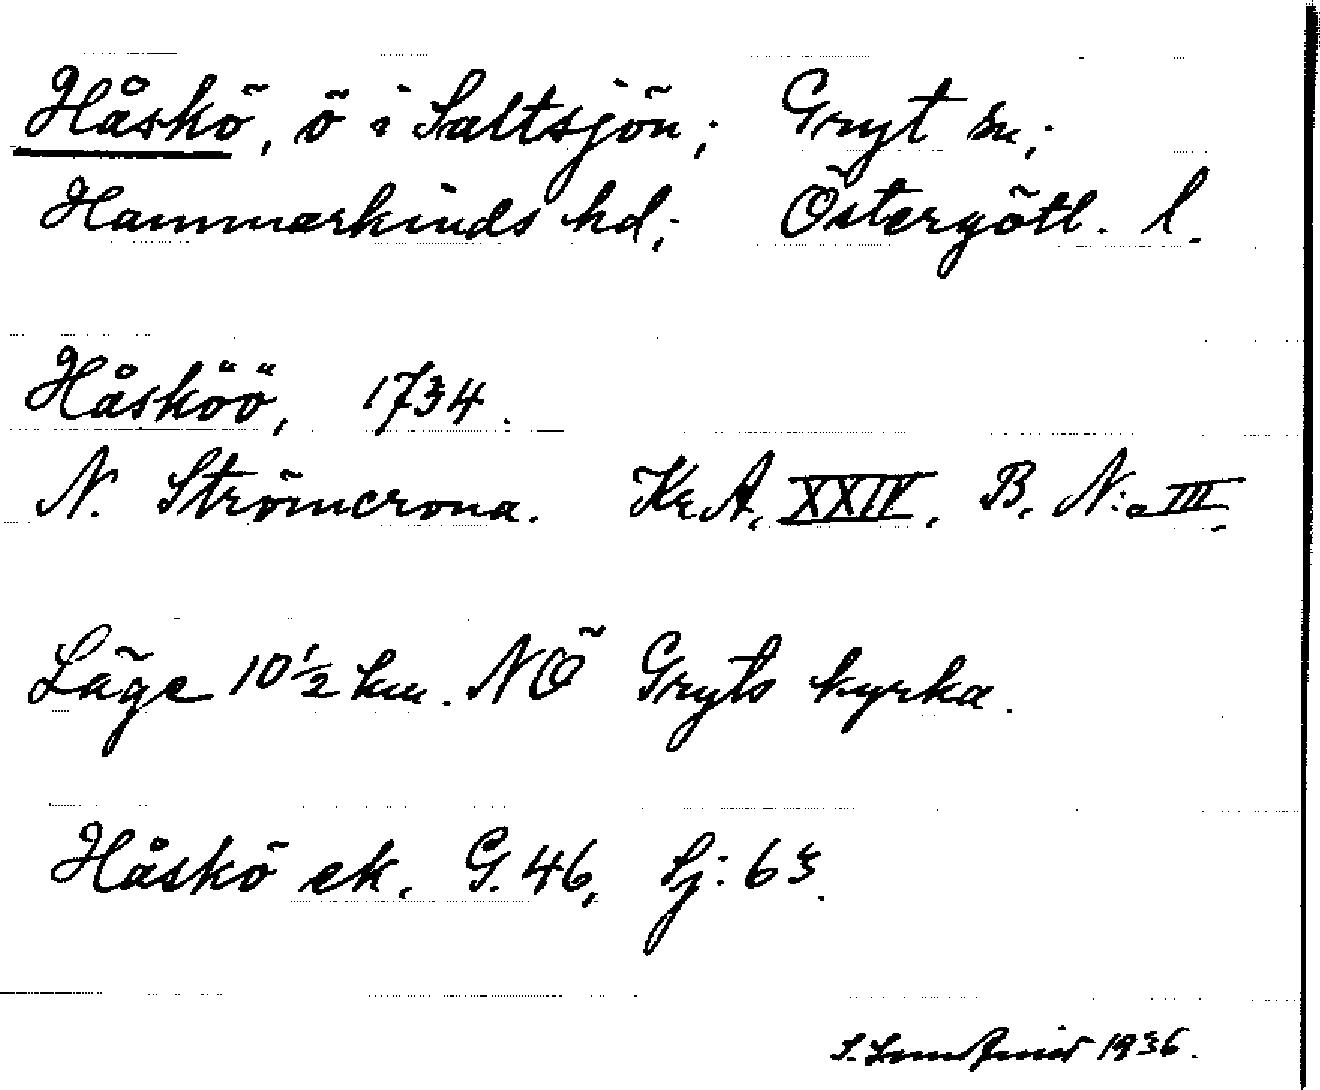 Håskö, ö i Saltsjön; Gryt sn;
Hammarkinds hd; Östergötl. l.
Håsköö, 1734.
N. Strömcrona. Kr.A. XXIV. B. N:o III.
Läge 10 1/2 km. NÖ Gryts kyrka.
Håskö ek. G. 46, Sj: 63.
S. 1936.